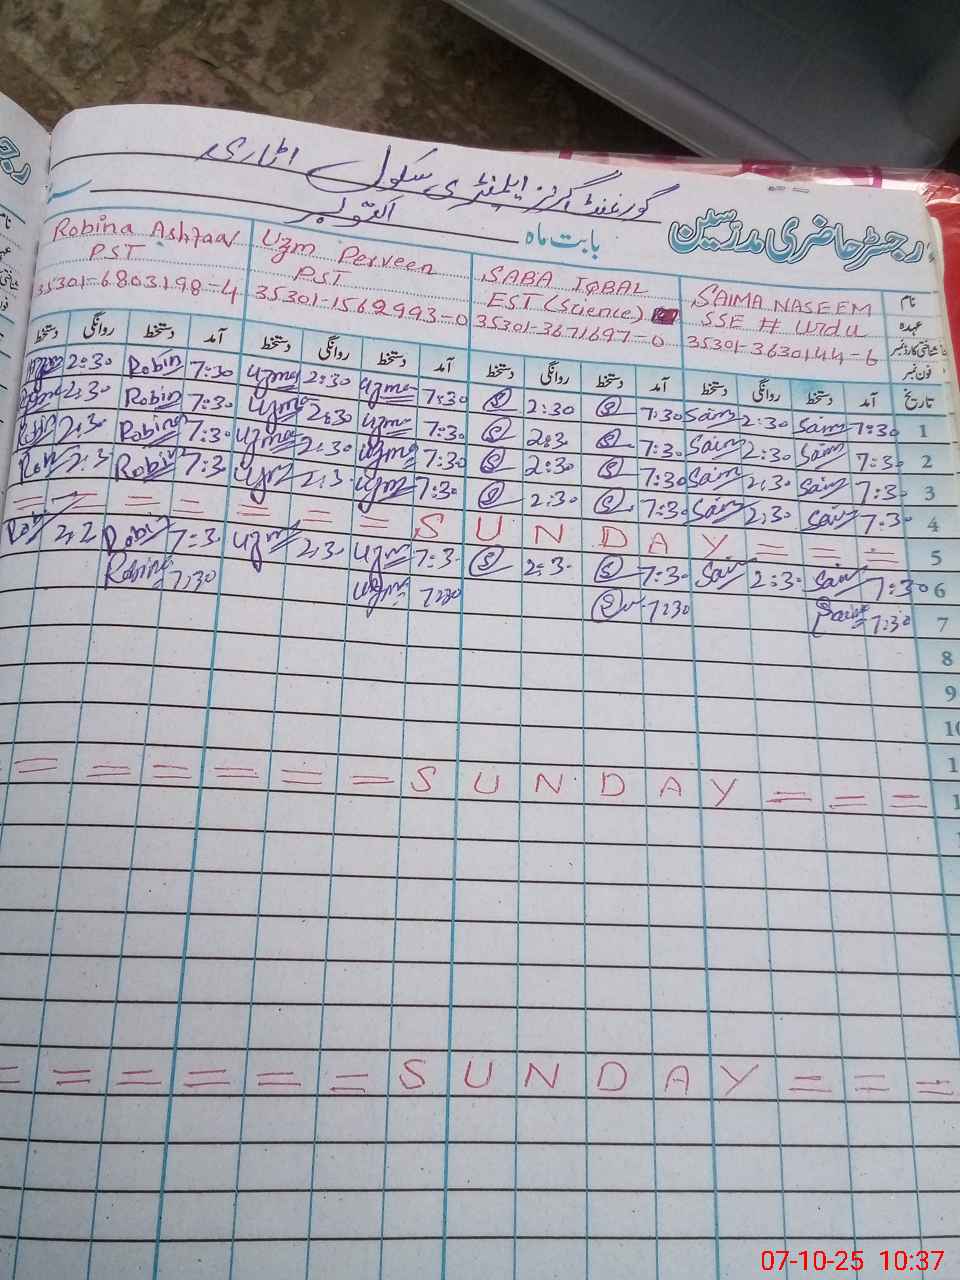 گورنمنٹ گرلز ایلیمنٹری سکول اٹاری
رجسٹر حاضری مدرسین
بابت ماہ اکتوبر
نام SAIMA NASEEM SABA IQBAL Uzm Perveen Robina Ashfaq
عہدہ SSE # Urdu EST (Science) PST PST
شناختی کارڈ نمبر 35301-3630144-6 35301-3671697-0 35301-1562993-0 35301-6803198-4
فون نمبر
تاریخ آمد دستخط روانگی دستخط آمد دستخط روانگی دستخط آمد دستخط روانگی دستخط آمد دستخط روانگی دستخط
1 7:30 Saim 2:30 Saim 7:30 S 2:30 S 7:30 Uzma 2:30 Uzma 7:30 Robin 2:30
2 7:30 Saim 2:30 Saim 7:30 S 2:3 S 7:30 Uzma 2:30 Uzma 7:30 Robin 2:30
3 7:30 Saim 2:30 Saim 7:30 S 2:30 S 7:30 Uzma 2:30 Uzma 7:30 Robina 2:3
4 7:30 Saim 2:30 Saim 7:30 S 2:30 S 7:30 Uzm 2:3 Uzm 7:3 Robin 2:3 Rob
5 = = = S U N D A Y = = = = = =
6 7:30 Saim 2:30 Saim 7:30 S 2:30 S 7:3 Uzm 2:30 Uzm 7:3 Robin 2:2 Rob
7 7:30 Saim 7:30 S 7:30 Uzm 7:30 Robina
8
9
10
1
1 = = = S U N D A Y = = = = = =
= = = S U N D A Y = = = = = =
07-10-25 10:37